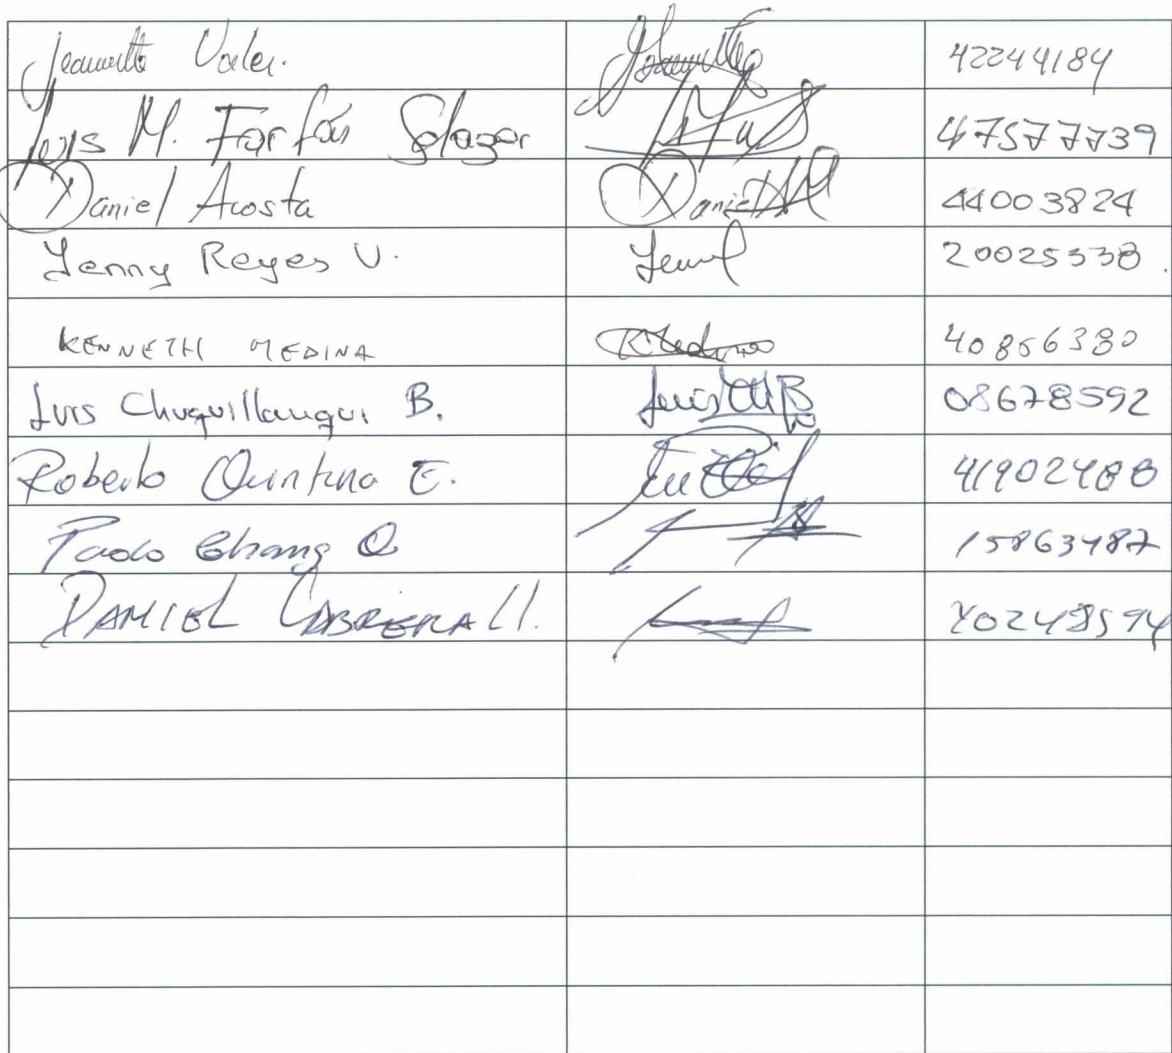 Jeannette Valer. 42244184
Luis M. Farfán Salazar 47577739
Daniel Acosta Daniel 44003824
Jenny Reyes V. 20025338.
KENNETH MEDINA KMedina 40856380
Luis Chuquillanqui B. Luis Ch B 08678592
Roberto Quintana E. 41902488
Paolo Chang Q 15863487
DANIEL CABRERA Ll. 40248594